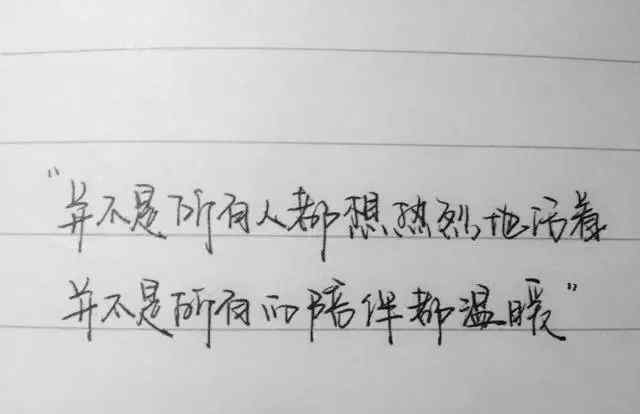 “并不是所有人都想热烈地活着
并不是所有的陪伴都温暖”